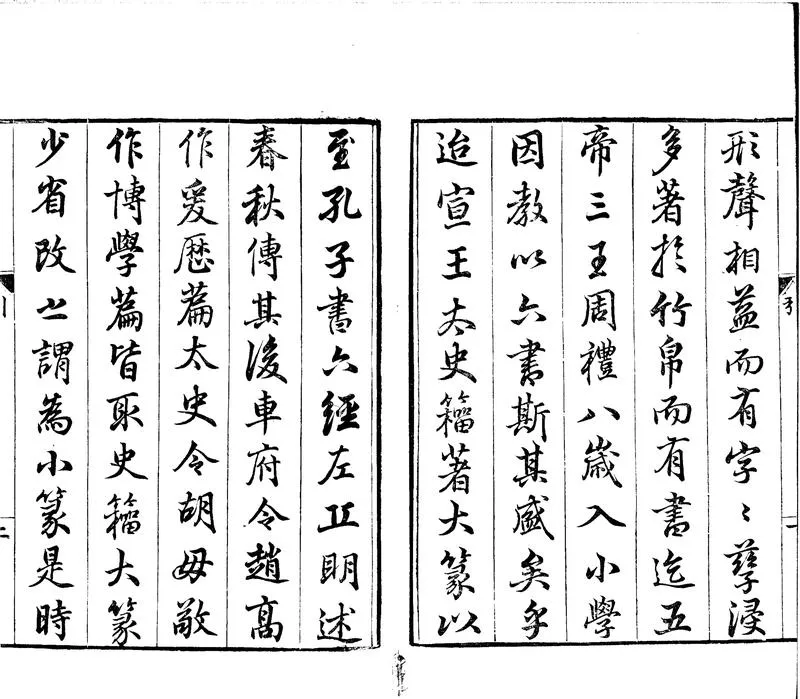 形聲相益而有字〻孳浸
多著於竹帛而有書迄五
帝三王周禮八歲入小學
因教以六書斯其盛矣乎
迨宣王太史籀著大篆以
至孔子書六經左丘明述
春秋傳其後車府令趙高
作爰歷篇太史令胡毋敬
作博學篇皆取史籀大篆
少省改之謂為小篆是時